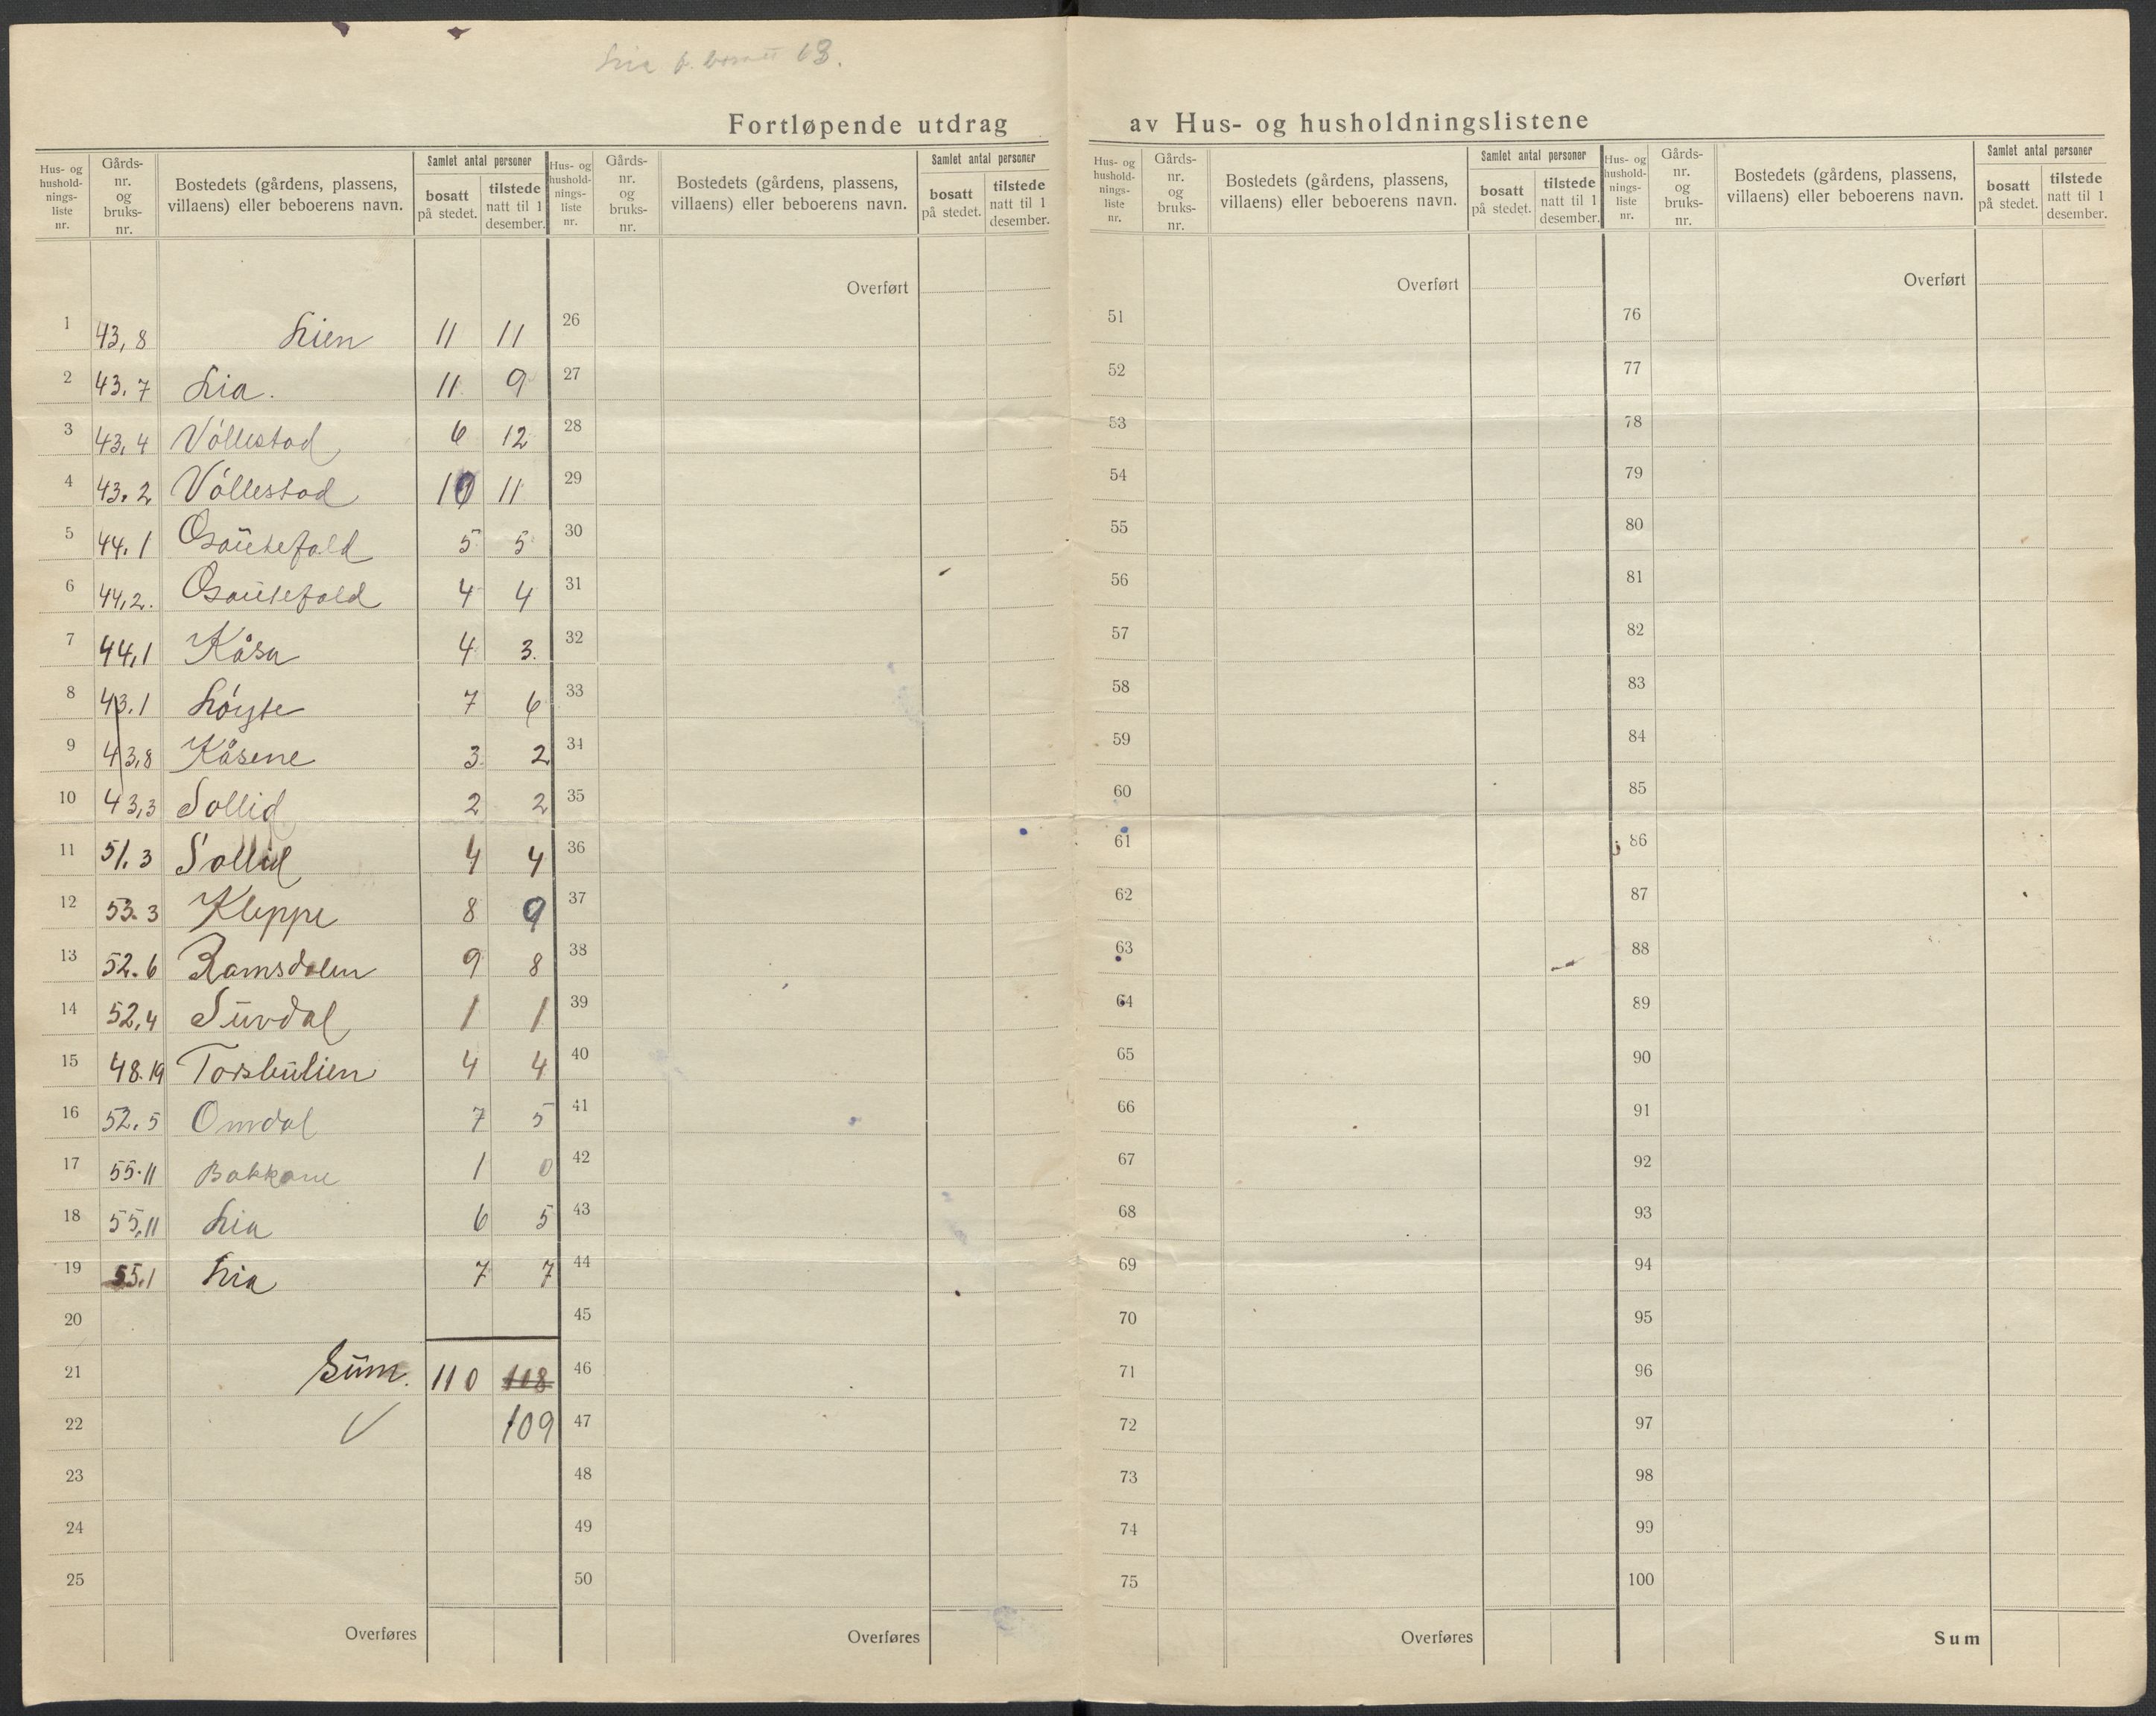 Lia f. bosatt 63.
Fortløpende utdrag av Hus- og husholdningslistene
Hus- og husholdnings-liste nr. Gårds-nr. og bruks-nr. Bostedets (gårdens, plassens, villaens) eller beboerens navn. Samlet antal personer bosatt på stedet. tilstede natt til 1 desember.
1 43,8 Lien 11 11
2 43.7 Lia. 11 9
3 43,4 Vollestad 6 12
4 43.2 Vóllestad 10 11
5 44.1 Gsautefald 5 5
6 44,2. Gsautefald 4 4
7 44,1 Kåsa 4 3.
8 43.1 Lóyte 7 6
9 43,8 Kåsene 3 2
10 43,3 Sollid 2 2
11 51.3 Sollid 4 4
12 53.3 Kleppe 8 9
13 52.6 Ramsdalen 9 8
14 52,4 Surdal 1 1
15 48.19 Torsbulien 4 4
16 52.5 Omdal 7 5
17 55.11 Bakkane 1 0
18 55,11 Lia 6 5
19 55.1 Lia 7 7
20
21 Sum. 110 118
22 109
23
24
25
Overføres
Hus- og husholdnings-liste nr. Gårds-nr. og bruks-nr. Bostedets (gårdens, plassens, villaens) eller beboerens navn. Samlet antal personer bosatt på stedet. tilstede natt til 1 desember.
Overført
26
27
28
29
30
31
32
33
34
35
36
37
38
39
40
41
42
43
44
45
46
47
48
49
50
Overføres
Hus- og hushold-nings-liste nr. Gårds-nr. og bruks-nr. Bostedets (gårdens, plassens, villaens) eller beboerens navn. Samlet antal personer bosatt på stedet. tilstede natt til 1 desember.
Overført
51
52
53
54
55
56
57
58
59
60
61
62
63
64
65
66
67
68
69
70
71
72
73
74
75
Overføres
Hus- og hushold-nings-liste nr. Gårds-nr. og bruks-nr. Bostedets (gårdens, plassens, villaens) eller beboerens navn. Samlet antal personer bosatt på stedet. tilstede natt til 1 desember.
Overført
76
77
78
79
80
81
82
83
84
85
86
87
88
89
90
91
92
93
94
95
96
97
98
99
100
Sum